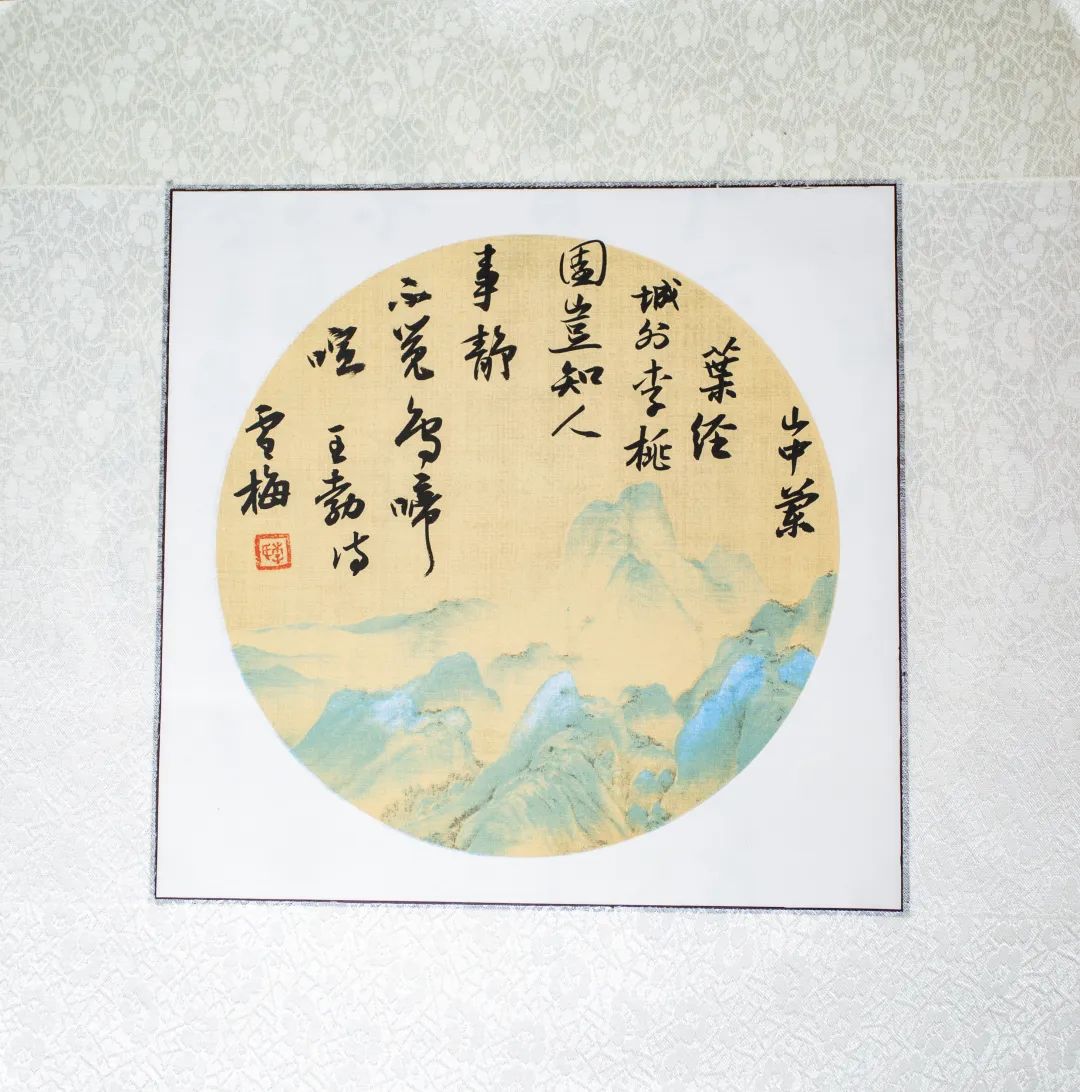 山中蘭
葉径
城外李桃
園豈知人
事靜
不覺鳥啼
喧
王勃诗
雪梅